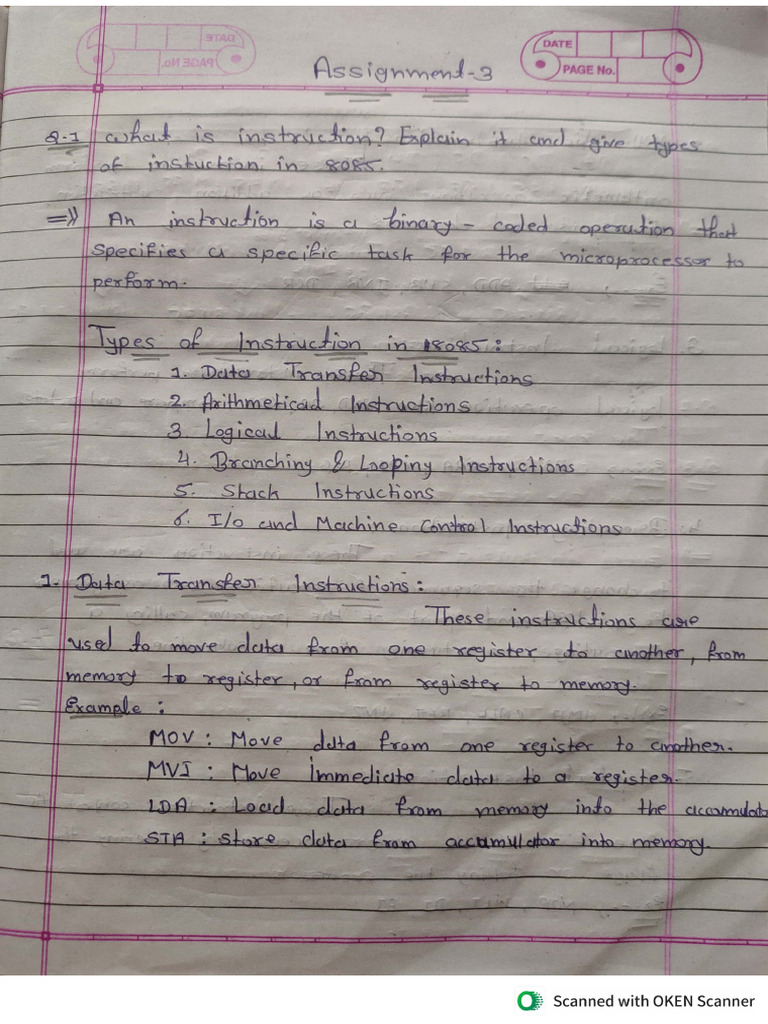 DATE
PAGE No.
Assignment-3
Q-1 what is instruction? Explain it and give types
of instuction in 8085.
=>> An instruction is a binary - coded operation that
specifies a specific task for the microprocessor to
perform.
Types of Instruction in 8085:
1. Data Transfer Instructions
2. Arithmetical Instructions
3 Logical Instructions
4. Branching & Looping Instructions
5. Stack Instructions
6. I/o and Machine Control Instructions
1. Data Transfer Instructions:
These instructions are
used to move data from one register to another, from
memory to register, or from register to memory.
Example:
MOV : Move data from one register to another.
MVI : Move immediate data to a register.
LDA : Load data from memory into the accumulator
STA : Store data from accumulator into memory.
Scanned with OKEN Scanner